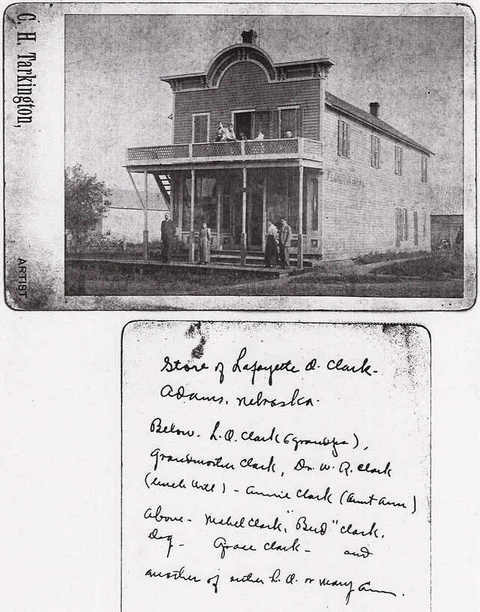 C. H. Tarkington,
ARTIST
Store of Lafayette O. Clark-
Adams, Nebraska.
Below. L.O. Clark (grandpa),
Grandmother Clark, Dr. W. R. Clark
(uncle Will) - Annie Clark (Aunt Ann)
above - Mabel Clark, "Bud" Clark,
Dog - Grace Clark - and
another of either L. O. or Mary Ann.